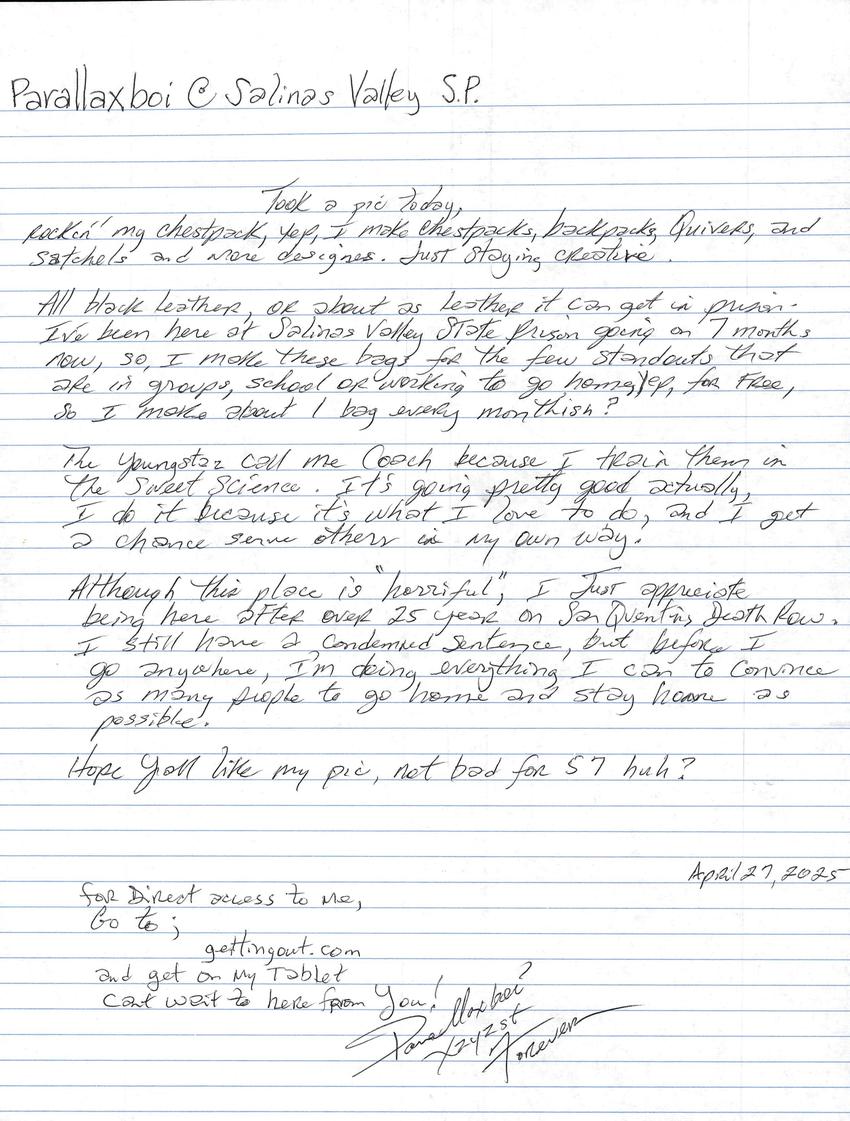 Parallaxboi @ Salinas Valley S.P.
Took a pic today,
Rockin' my chestpack, yep, I make chestpacks, backpacks, Quivers, and
Satchels and more designes. Just staying creative.
All black leather, or about as leather it can get in prison.
I've been here at Salinas Valley State Prison going on 7 months
now, so, I make these bags for the few standouts that
are in groups, school or working to go home, yep, for Free,
so I make about 1 bag every monthish?
The Youngstaz call me Coach because I train them in
the Sweet Science. It's going pretty good actually,
I do it because it's what I love to do, and I get
a chance serve others in my own way.
Although this place is "horriful", I Just appreciate
being here after over 25 year on San Quentins Death Row.
I still have a Condemned Sentence, but before I
go anywhere, I'm doing everything I can to Convince
as many people to go home and stay home as
possible.
Hope Y'all like my pic, not bad for 57 huh?
April 27, 2025
for Direct access to me,
Go to ;
gettingout.com
and get on My Tablet
Cant wait to here from You!
Parallaxboi
Forever